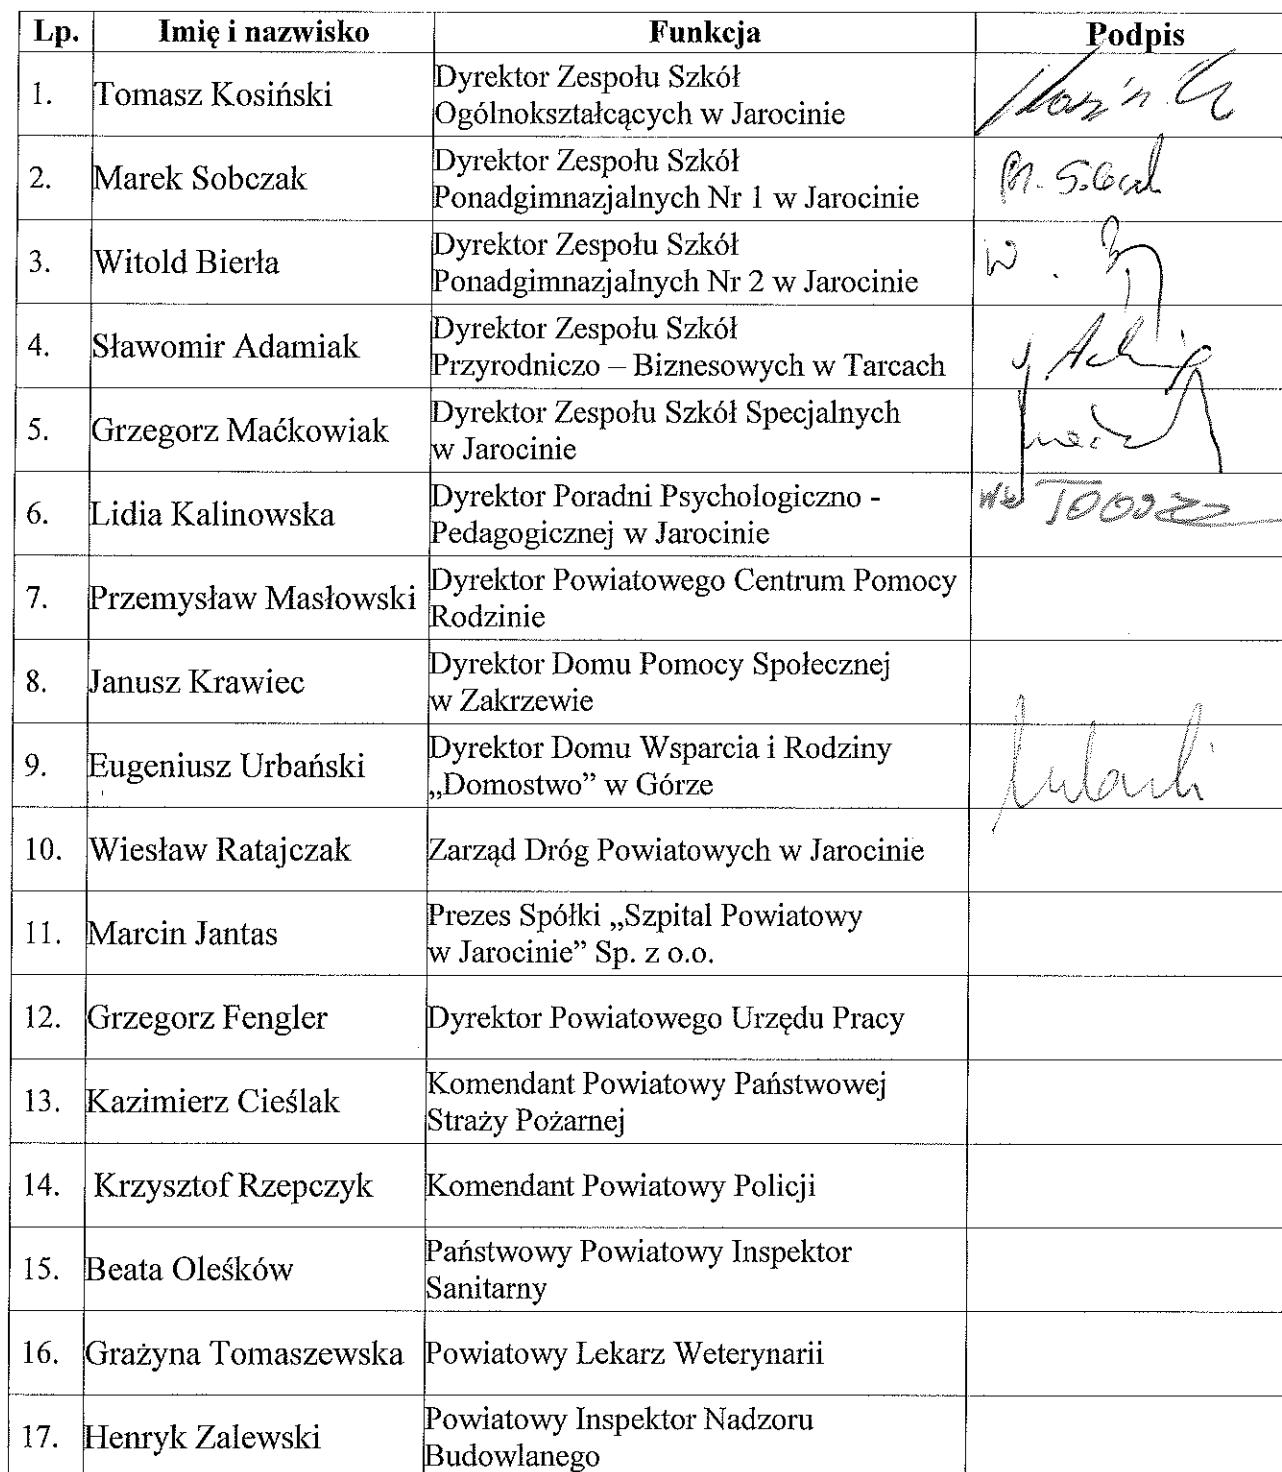 Lp. Imię i nazwisko Funkcja Podpis
1. Tomasz Kosiński Dyrektor Zespołu Szkół
Ogólnokształcących w Jarocinie
2. Marek Sobczak Dyrektor Zespołu Szkół
Ponadgimnazjalnych Nr 1 w Jarocinie
3. Witold Bierła Dyrektor Zespołu Szkół
Ponadgimnazjalnych Nr 2 w Jarocinie
4. Sławomir Adamiak Dyrektor Zespołu Szkół
Przyrodniczo – Biznesowych w Tarcach
5. Grzegorz Maćkowiak Dyrektor Zespołu Szkół Specjalnych
w Jarocinie
6. Lidia Kalinowska Dyrektor Poradni Psychologiczno -
Pedagogicznej w Jarocinie
7. Przemysław Masłowski Dyrektor Powiatowego Centrum Pomocy
Rodzinie
8. Janusz Krawiec Dyrektor Domu Pomocy Społecznej
w Zakrzewie
9. Eugeniusz Urbański Dyrektor Domu Wsparcia i Rodziny
„Domostwo” w Górze
10. Wiesław Ratajczak Zarząd Dróg Powiatowych w Jarocinie
11. Marcin Jantas Prezes Spółki „Szpital Powiatowy
w Jarocinie” Sp. z o.o.
12. Grzegorz Fengler Dyrektor Powiatowego Urzędu Pracy
13. Kazimierz Cieślak Komendant Powiatowy Państwowej
Straży Pożarnej
14. Krzysztof Rzepczyk Komendant Powiatowy Policji
15. Beata Oleśków Państwowy Powiatowy Inspektor
Sanitarny
16. Grażyna Tomaszewska Powiatowy Lekarz Weterynarii
17. Henryk Zalewski Powiatowy Inspektor Nadzoru
Budowlanego